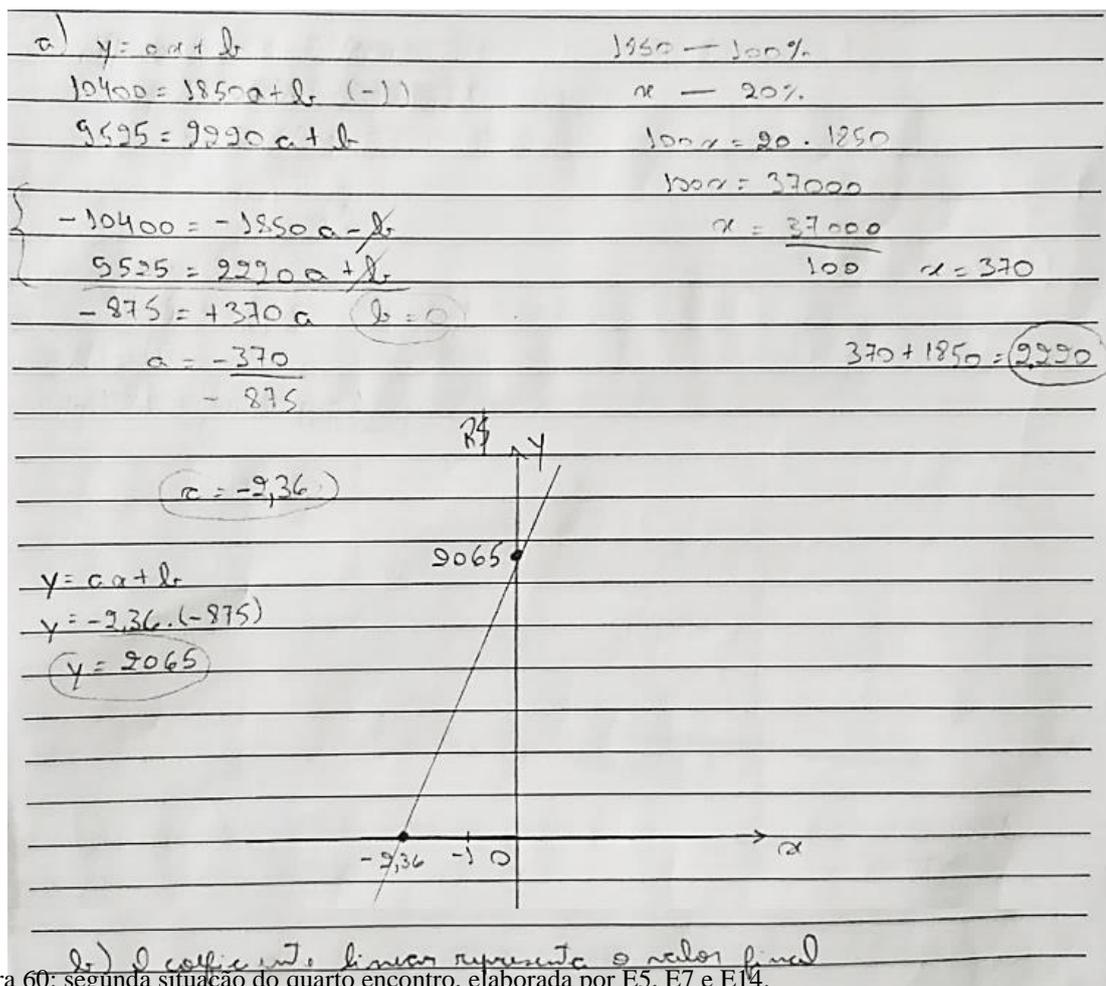 a) y = ax + b
10400 = 1850a + b (-1)
9525 = 2220a + b
- 10400 = - 1850a - b
9525 = 2220a + b
- 875 = + 370a b = 0
a = - 370
- 875
x = -2,36
y = ax + b
y = -2,36 . (-875)
y = 2065
1850 — 100%
x — 20%
100x = 20 . 1850
100x = 37000
x = 37000
100 x = 370
370 + 1850 = 2220
R$ y
2065
-2,36 -1 0 x
b) O coeficiente linear representa o valor final
ra 60: segunda situação do quarto encontro, elaborada por E5, E7 e E14.